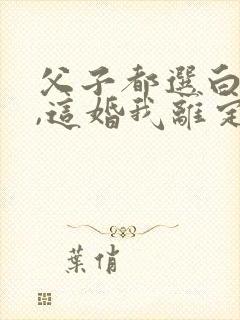 父子都選白
,這婚我離定
葉俏